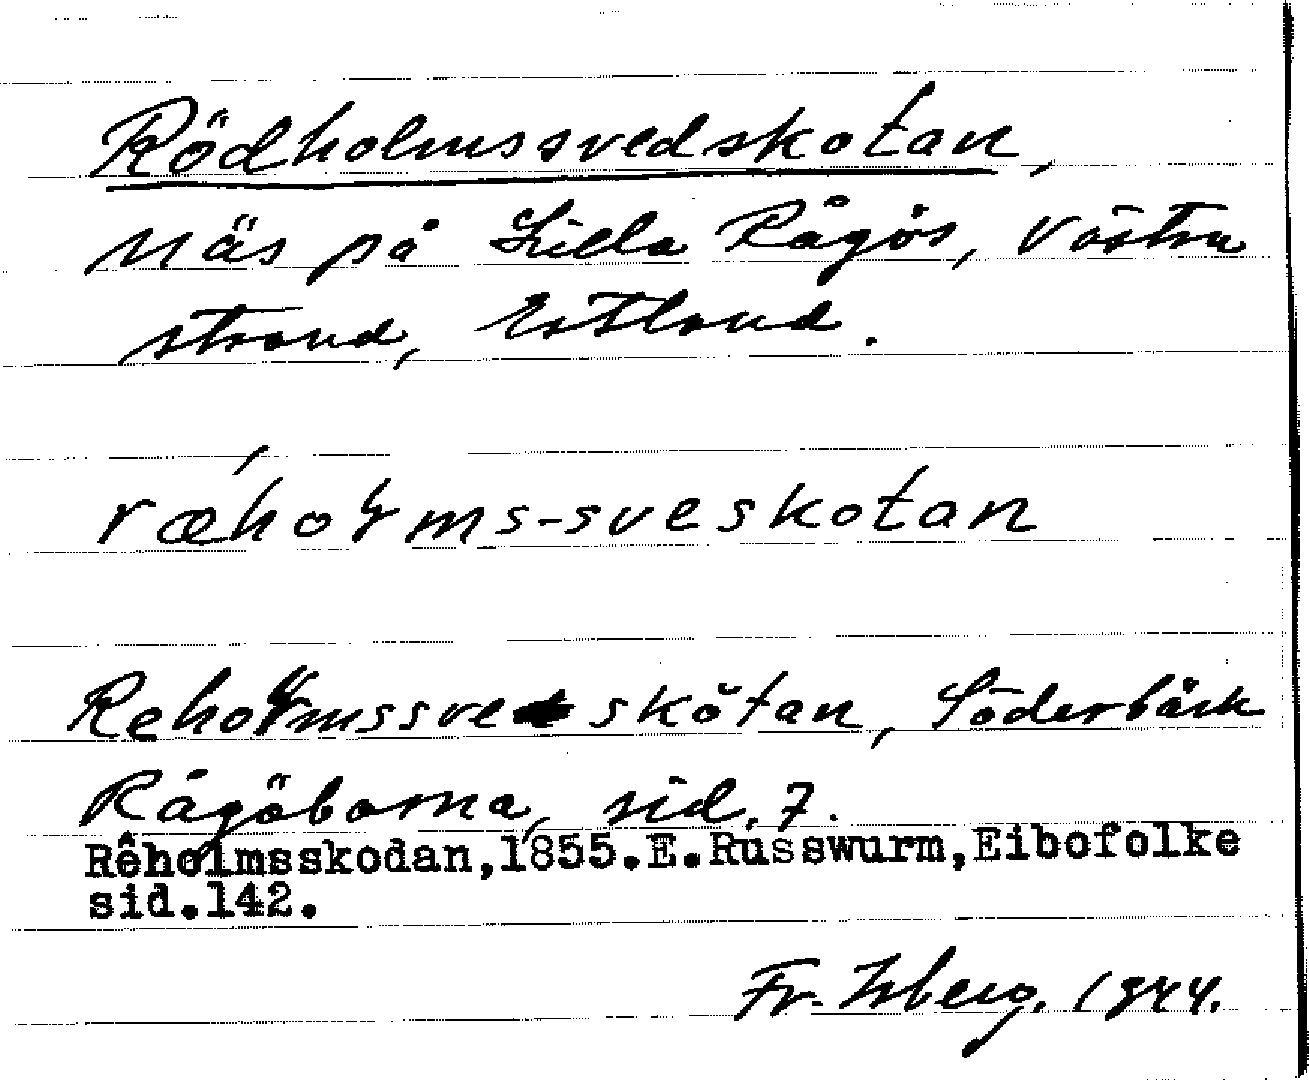 Rödholmssvedskotan,
näs på Lilla Rågös, västra
strand, Estland.
ræholms-sveskotan
Reholmssvedskötan, Söderbäck
Rågöborna, sid. 7.
Rêholmsskodan,1855.E.Russwurm,Eibofolke
sid.142.
Fr. Isberg. 1944.